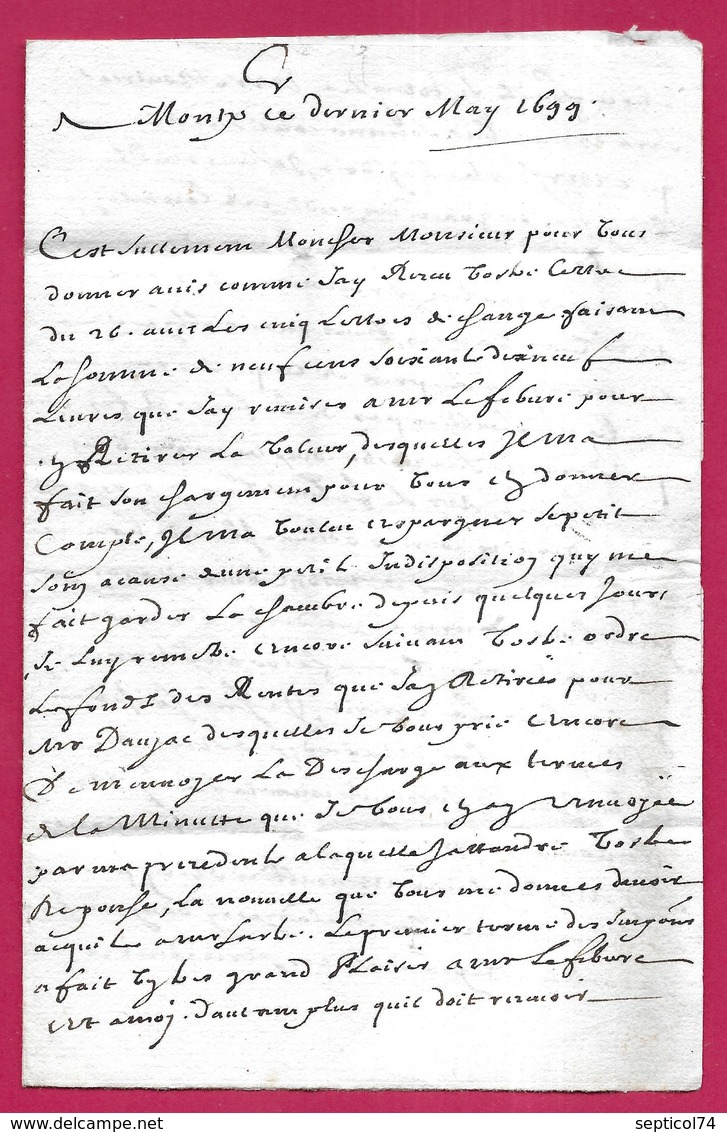 Montp ce dernier May 1699.
C'est sullement Moncher Monsieur pour Vous
donner avis comme Jay Receu Vostre Lettre
du 26. avec Les cinq Lettres de change faisant
La somme de neuf cens soixante dix neuf
Livres que Jay remises a Mr Lefebure pour
en Retirer La Valeur, desquelles Il ma
fait son chargement pour Vous en donner
Compte, Il ma Voulu espargner se petit
soin a cause d'une petite Indisposition quy me
fait garder La chambre depuis quelques Jours,
Je Luy remettre encore suivant Vostre ordre
Le fonds des Rentes que Jay Retirées pour
Mr Daujac desquelles Je Vous prie encore
De m'envoyer La Descharge aux termes
de la Minutte que Je Vous en ay envoyée
par ma precedente a laquelle J'attandre Vostre
Reponse, La nouvelle que Vous me donnes davoir
acquitte a Mr Le premier terme des
a fait tres grand Plaisir a Mr Lefebure
et a moj. d'autant plus quil doit recevoir
septicol74